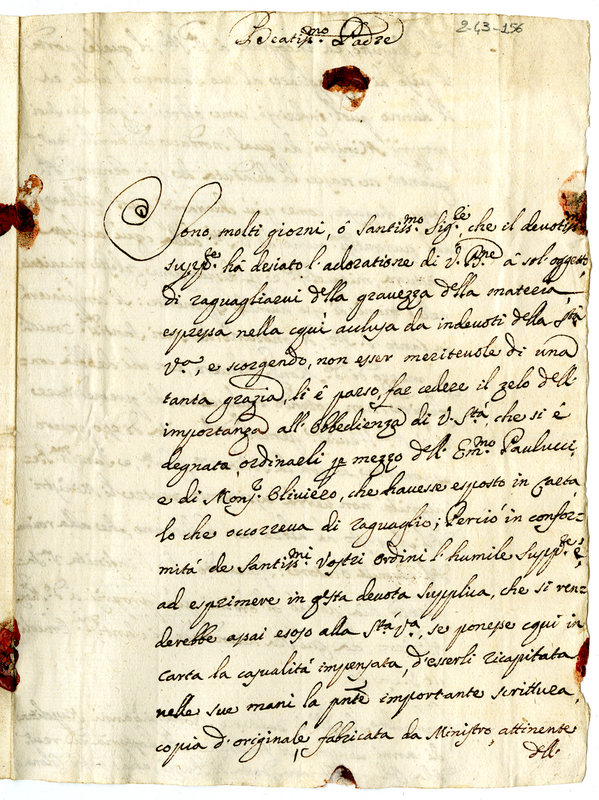 2-43-156
Beatiss.mo Padre
Sono molti giorni, ó Santiss.mo Sig.re, che il devotiss.
supp.te há desiato l'adoratione di V. B.ne á sol' oggetto
di raguagliarvi della gravezza della materia
espressa nella cqui acclusa da indevoti della Stá
V.a, e scorgendo, non esser meritevole di una
tanta grazia, li é parso, far cedere il zelo dell'
importanza all' obbedienza di V. Stá, che si é
degnata ordinarli p mezzo dell' Em.mo Paulucci,
e di Mons.r Oliviero, che havesse esposto in carta
lo che occorreva di raguaglio; Perció in confor=
mitá de Santiss.mi Vostri ordini l'humile Supp.te é,
ad esprimere in qsta devota supplica, che si ren=
derebbe assai esoso alla Stá V.a, se ponesse cqui in
carta la casualitá impensata, d'esserli ricapitata
nelle sue mani la pnte importante scrittura,
copia d'originale, fabricata da Ministro, attinente
dell'